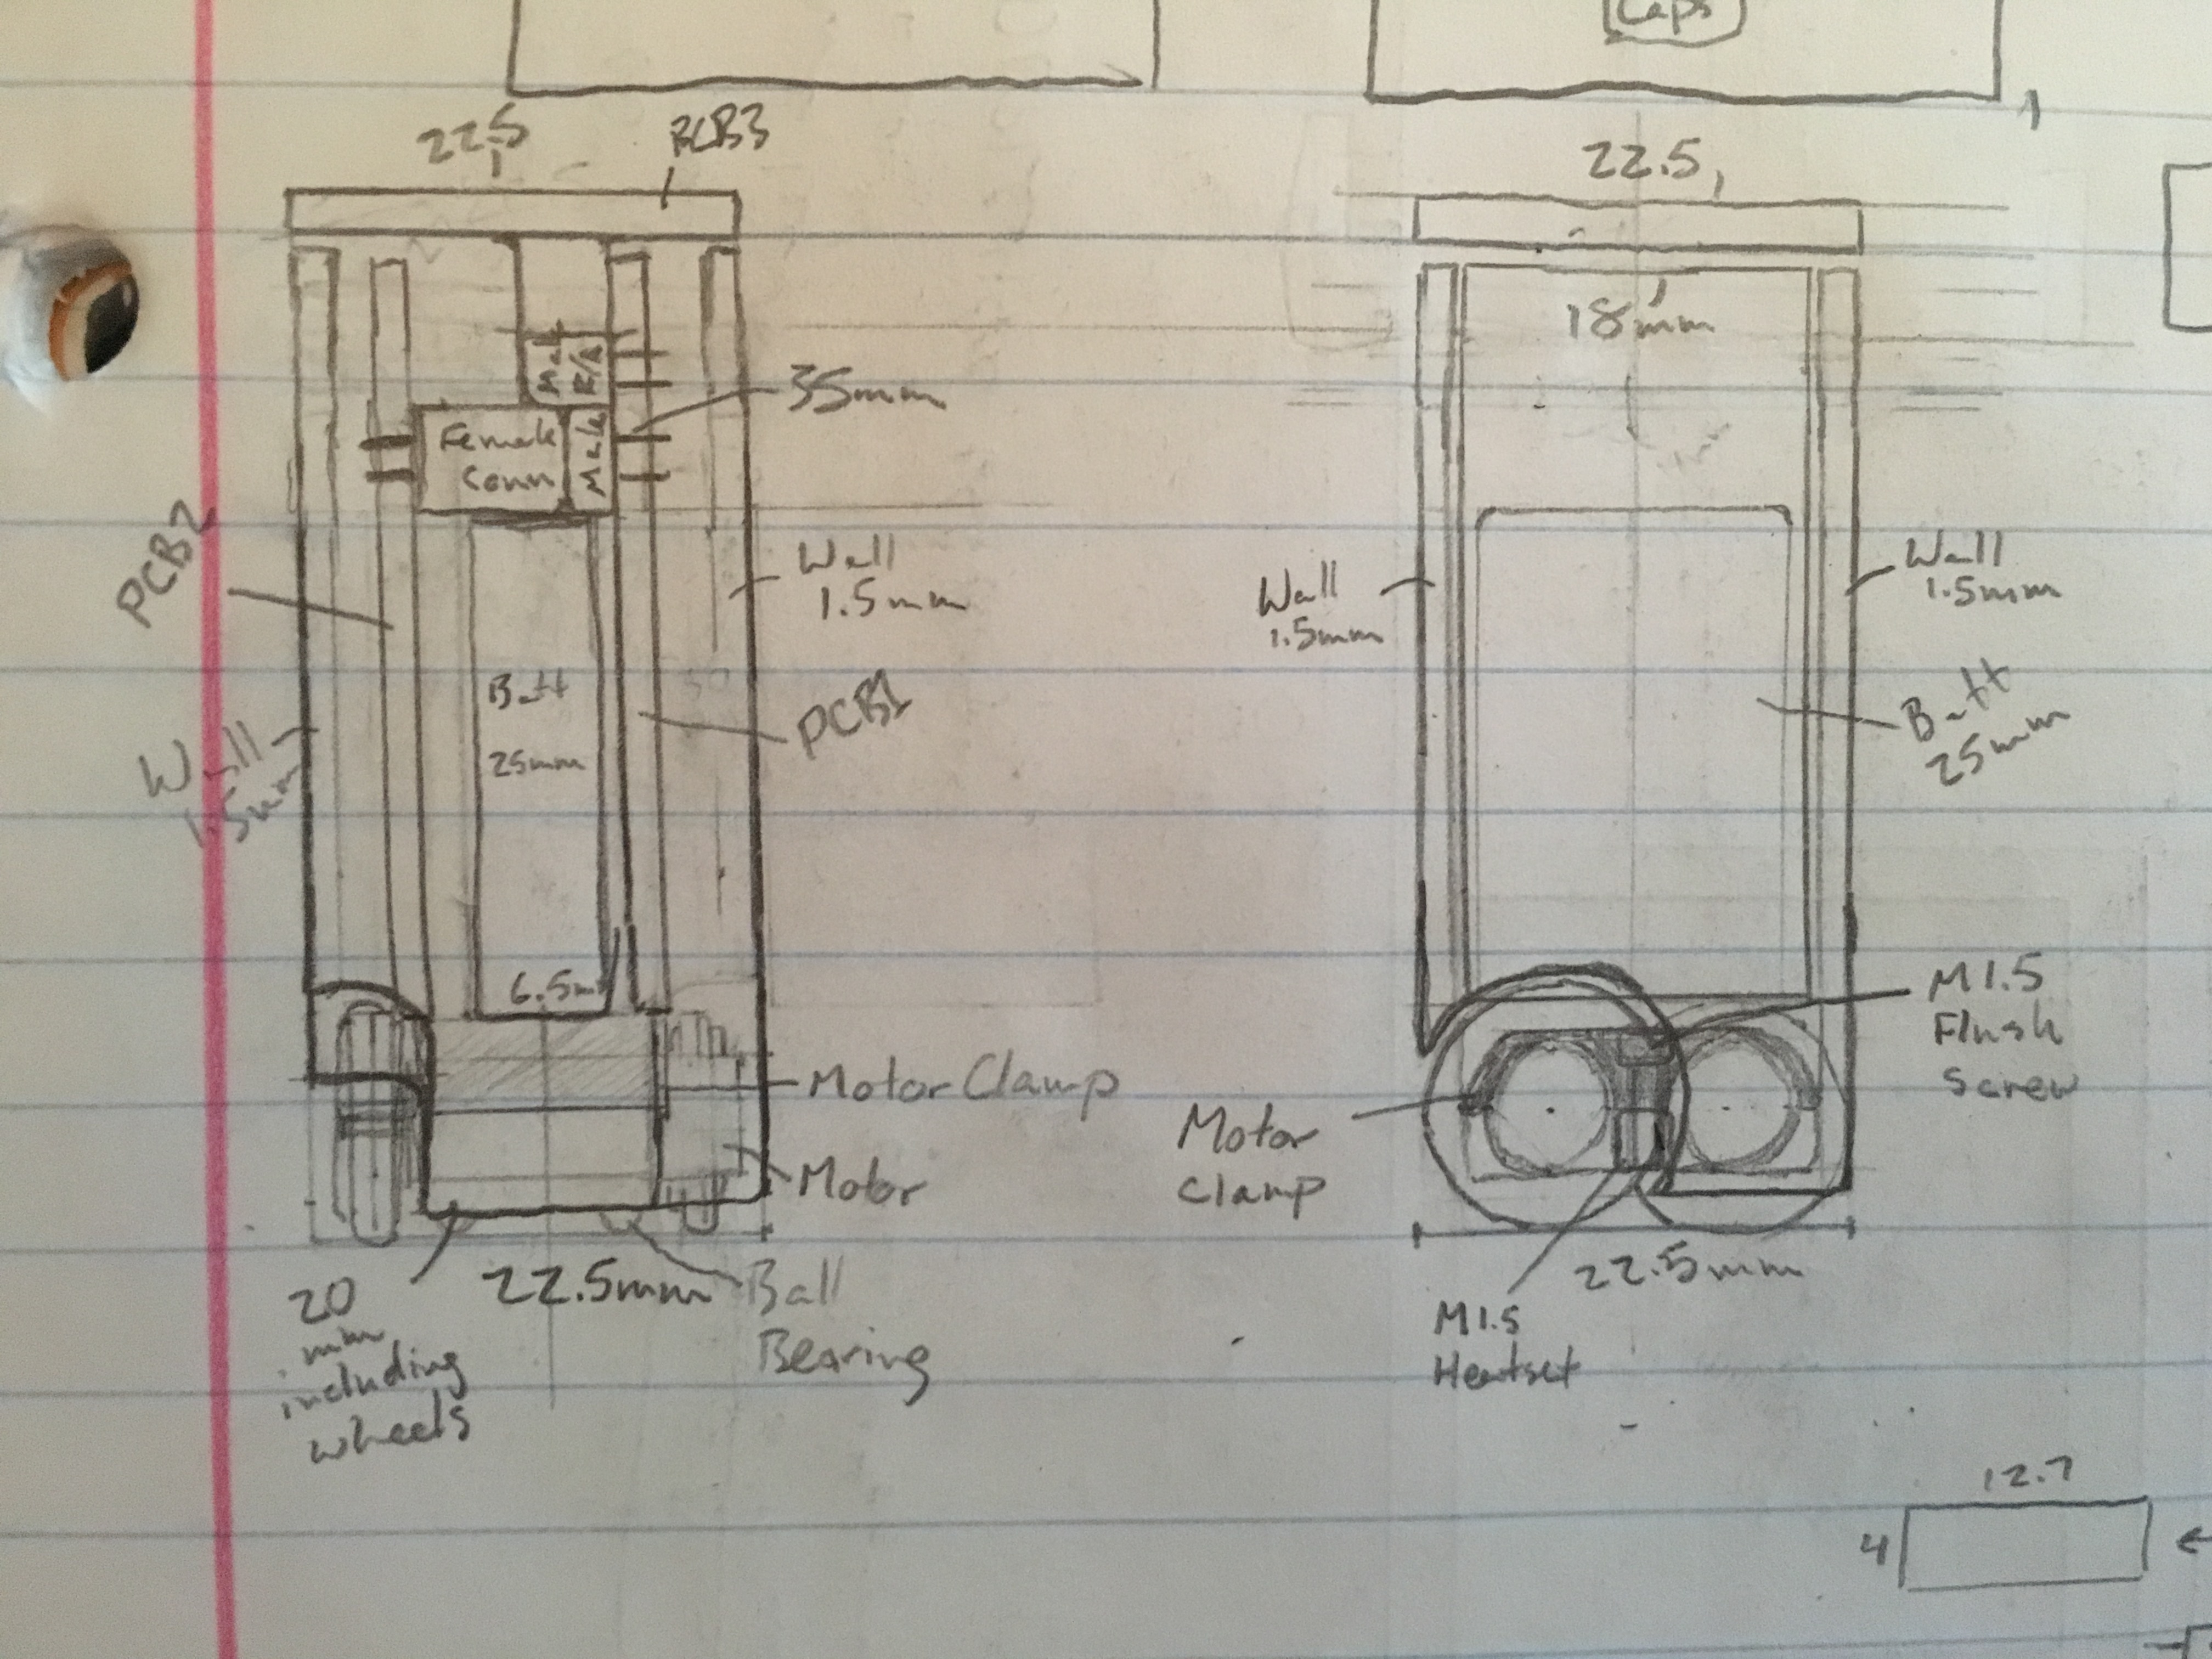 Caps
22.5
PCB3
Male
R/A
35mm
Female
Conn
Male
PCB2
Wall
1.5mm
Batt
25mm
PCB1
Wall
1.5mm
6.5m
Motor Clamp
Motor
20
mm
including
wheels
22.5mm
Ball
Bearing
22.5
18mm
Wall
1.5mm
Wall
1.5mm
Batt
25mm
M1.5
Flush
Screw
Motor
Clamp
22.5mm
M1.5
Heatset
12.7
4